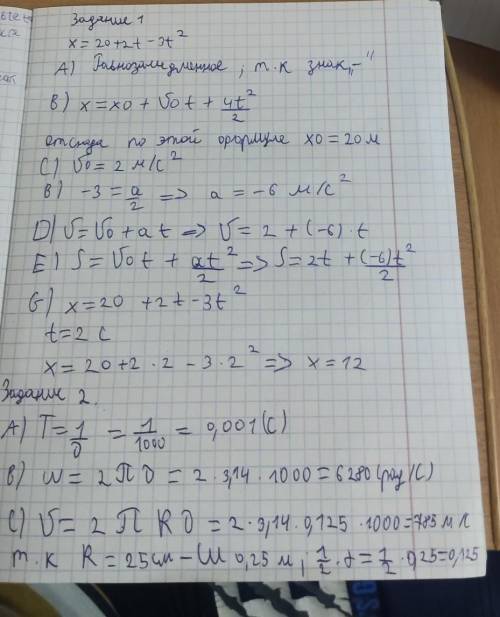 Задание 1
x = 20+2t-3t²
A) Равнозамедленное, т.к знак „-"
B) x = x0 + v0t + 4t²/2
отсюда по этой формуле x0 = 20 м
C) v0 = 2 м/с²
B) -3 = a/2 => a = -6 м/с²
D) v = v0 + at => v = 2 + (-6)·t
E) S = v0t + at²/2 => S = 2t + (-6)t²/2
G) x = 20 + 2t - 3t²
t = 2 c
x = 20+2·2 - 3·2² => x = 12
Задание 2.
A) T = 1/υ = 1/1000 = 0,001(с)
B) ω = 2πυ = 2·3,14·1000 = 6280(рад/с)
C) v = 2πRυ = 2·3,14·0,125·1000 = 785 м
т.к R = 25см - 0,25 м, 1/2·d = 1/2·0,25 = 0,125